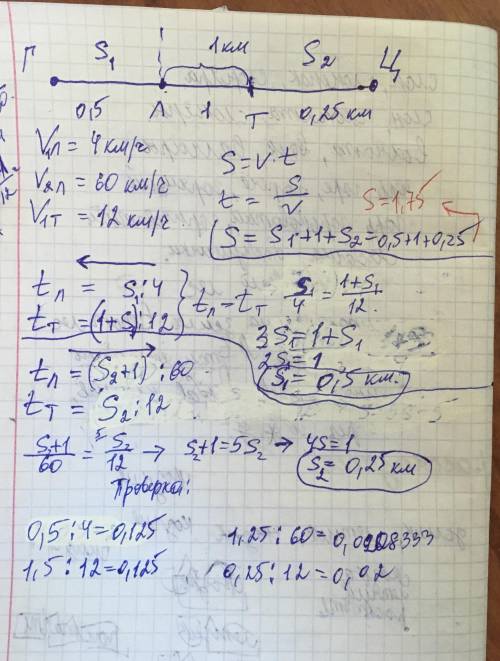 Г S₁ 1 км S₂ Ц
0,5 Л 1 Т 0,25 км
V₁л = 4 км/ч
V₂л = 60 км/ч
V₁т = 12 км/ч
S = v · t
t = S/v
S = 1,75
S = S₁ + 1 + S₂ = 0,5 + 1 + 0,25
tл = S₁ : 4
tт = (1 + S₁) : 12
tл = tт S₁/4 = (1 + S₁)/12
3S₁ = 1 + S₁
2S₁ = 1
S₁ = 0,5 км.
tл = (S₂ + 1) : 60
tт = S₂ : 12
(S₂ + 1)/60 = ⁵S₂/12 → S₂ + 1 = 5S₂ → 4S = 1
S₂ = 0,25 км
Проверка:
0,5 : 4 = 0,125
1,5 : 12 = 0,125
1,25 : 60 = 0,0208333
0,25 : 12 = 0,02